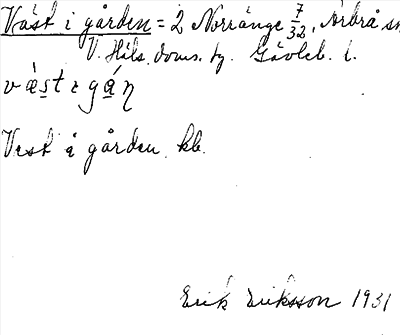 Väst i gården = 2 Norränge 7/32, Arbrå sn
V. Häls. doms. fg. Gävleb. l.
vä̀st ɩ gá̱ɳ
Vest å gården kb.
Erik Eriksson 1931